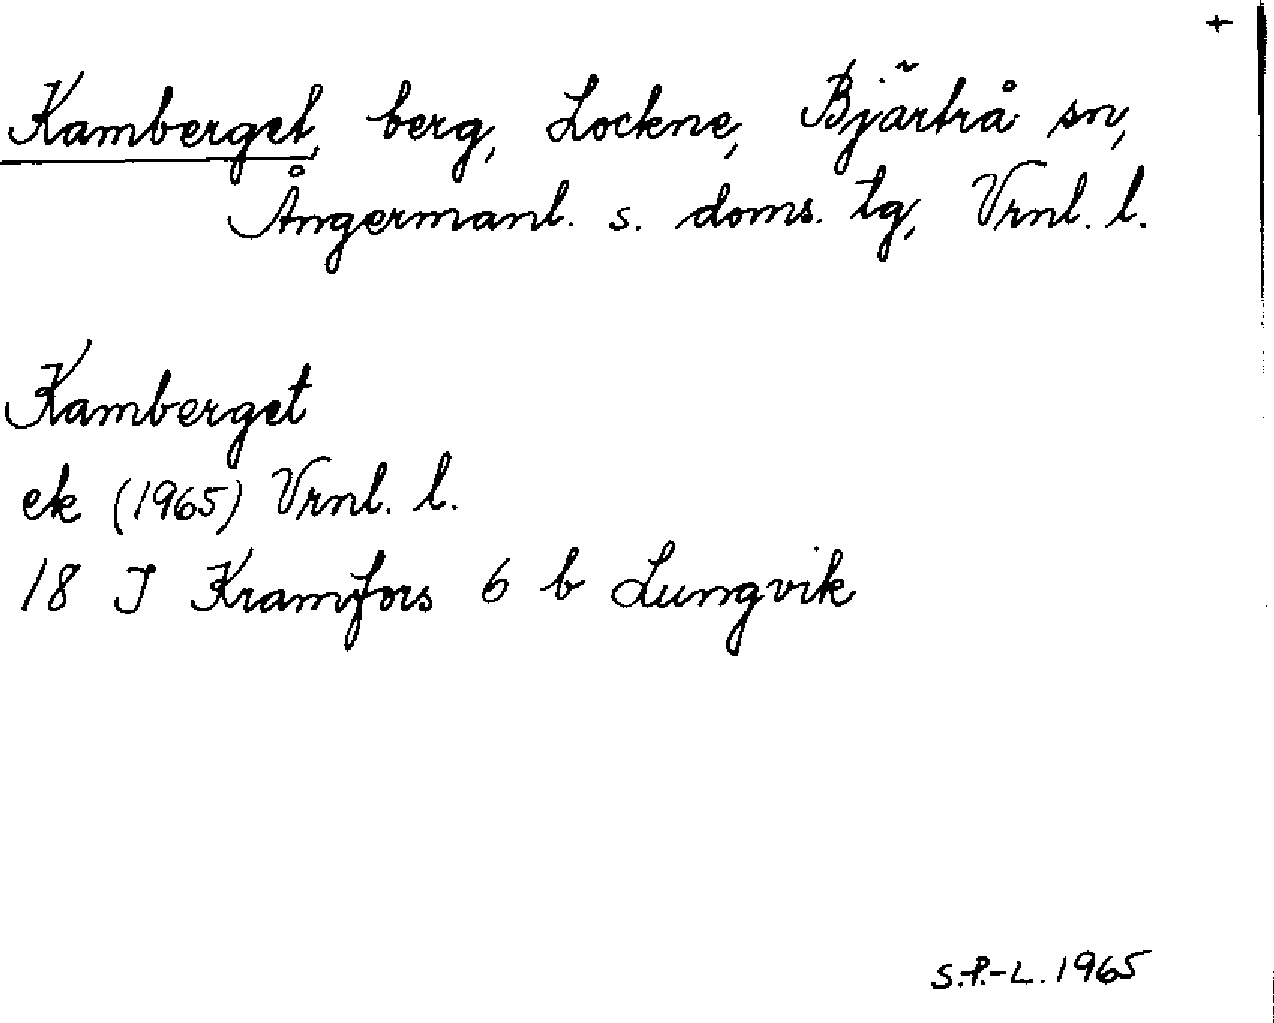 +
Kamberget, berg, Lockne, Bjärtrå sn,
Ångermanl. s. doms. tg, Vrnl. l.
Kamberget
ek (1965) Vrnl. l.
18 J Kramfors 6 b Lungvik
S.P.-L. 1965